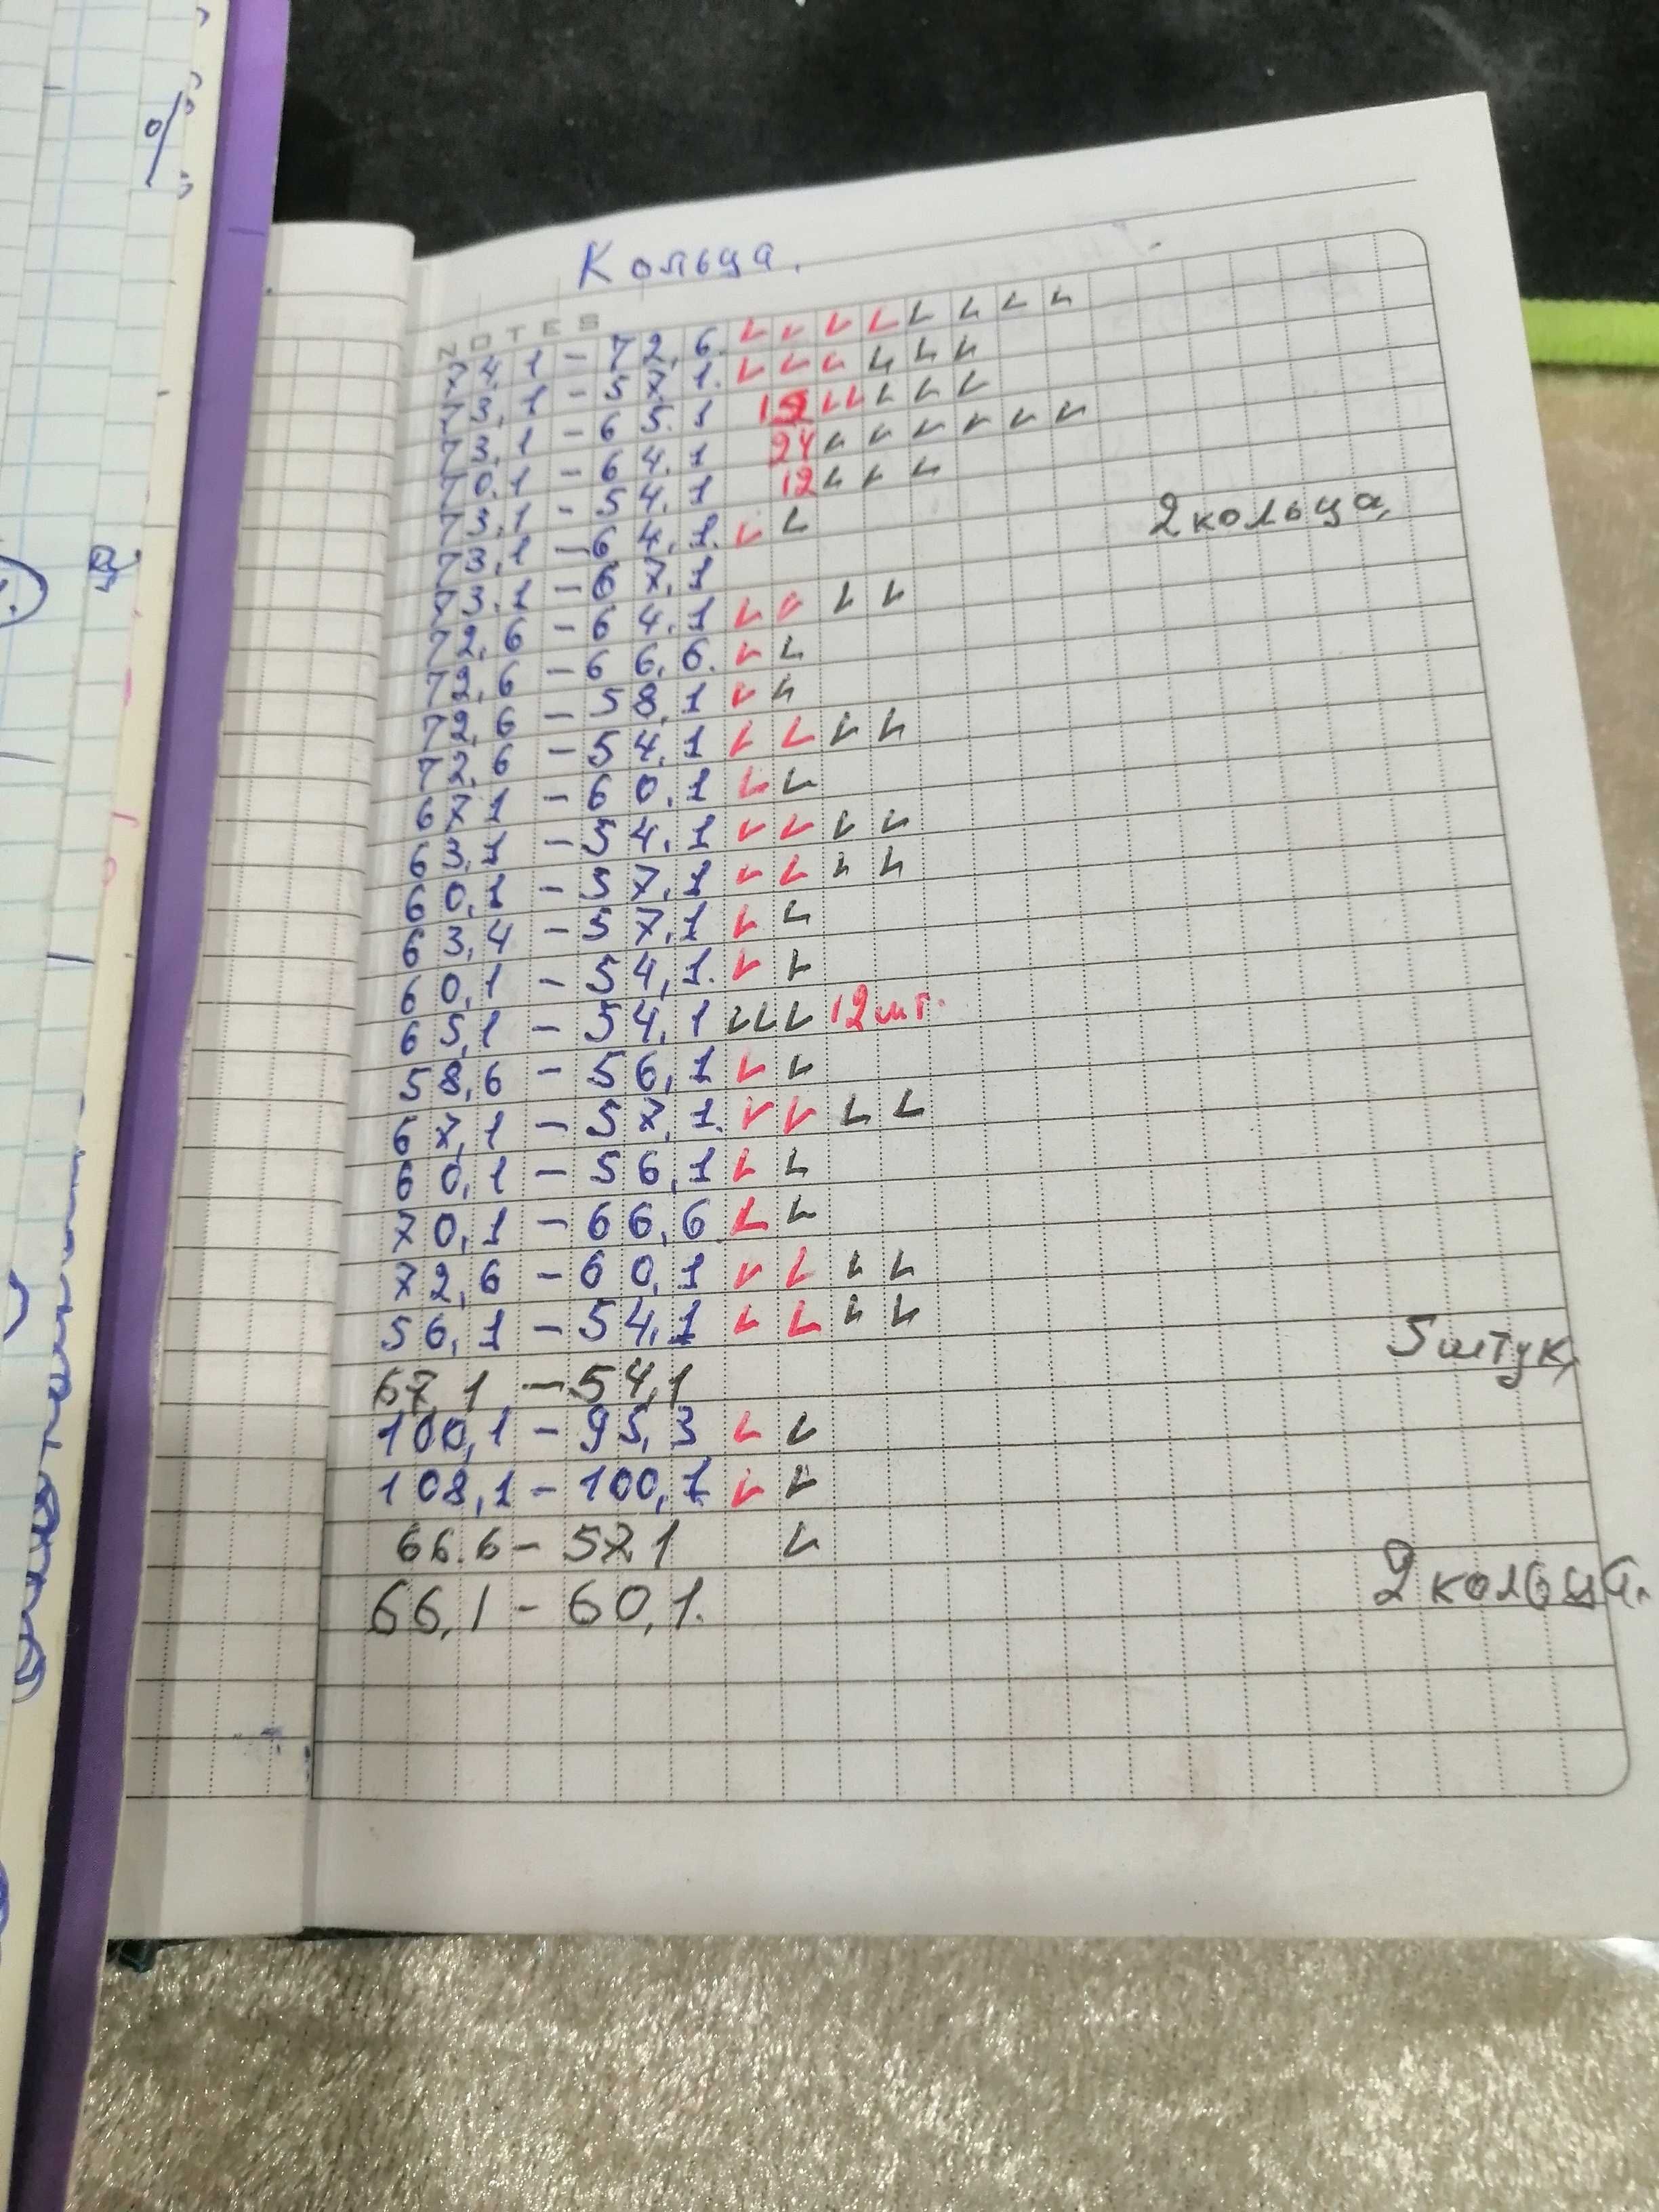 Кольца.
NOTES
74,1 - 72,6.
73,1 - 57,1.
73,1 - 65.1
70,1 - 64,1 24
73,1 - 54,1 12
73,1 - 64,1.
73,1 - 67,1 2 кольца,
72,6 - 64,1
72,6 - 66,6.
72,6 - 58,1
72,6 - 54,1
67,1 - 60,1
63,1 - 54,1
60,1 - 57,1
63,4 - 57,1
60,1 - 54,1.
65,1 - 54,1 12 шт.
58,6 - 56,1
67,1 - 57,1.
60,1 - 56,1
70,1 - 66,6
72,6 - 60,1
56,1 - 54,1
67,1 - 54,1 5 штук,
100,1 - 95,3
108,1 - 100,1
66.6 - 57,1
66,1 - 60,1. 2 кольца.